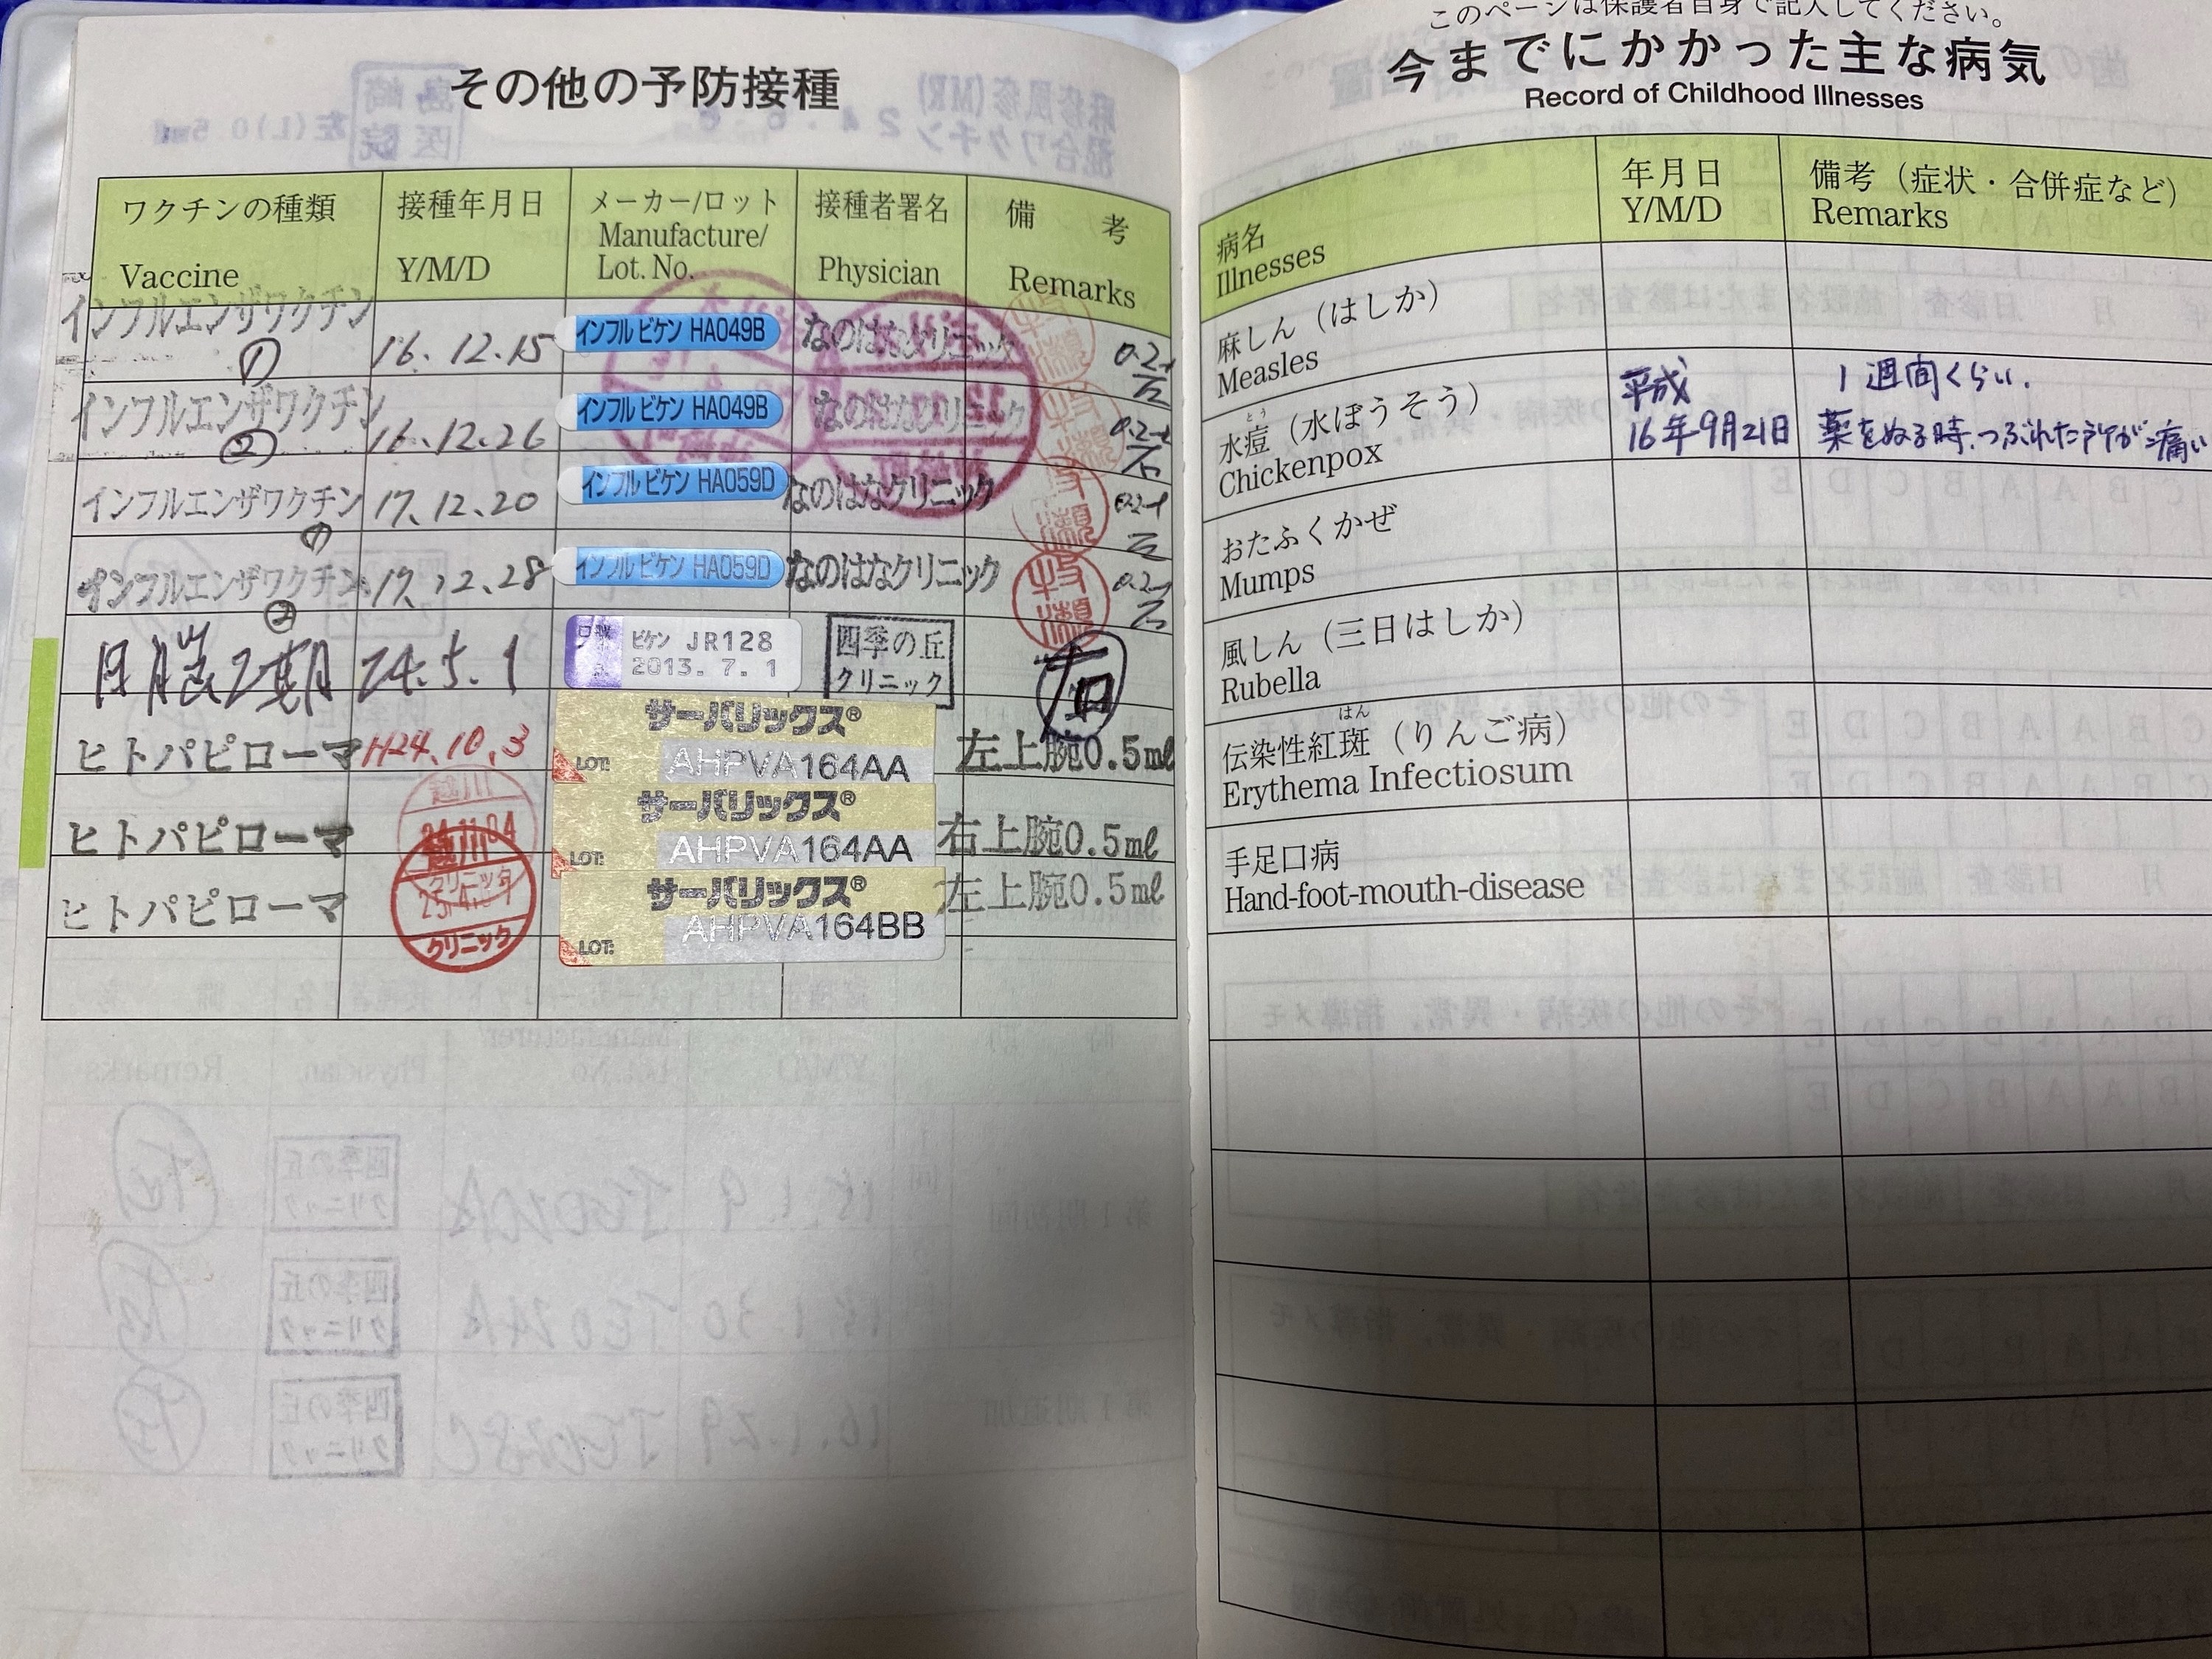 その他の予防接種
ワクチンの種類 接種年月日 メーカー/ロット 接種者署名 備考
Vaccine Y/M/D Manufacture/ Lot. No. Physician Remarks
インフルエンザワクチン ① 16.12.15 インフル ビケン HA049B なのはなクリニック
インフルエンザワクチン ② 16.12.26 インフル ビケン HA049B なのはなクリニック
インフルエンザワクチン ① 17.12.20 インフル ビケン HA059D なのはなクリニック
インフルエンザワクチン ② 17.12.28 インフル ビケン HA059D なのはなクリニック
日脳2期 24.5.1 ビケン JR128 2013.7.1 四季の丘クリニック 右
ヒトパピローマ H24.10.3 サーバリックス® LOT: AHPVA164AA 左上腕0.5ml
ヒトパピローマ 越川 24.11.04 サーバリックス® LOT: AHPVA164AA 右上腕0.5ml
ヒトパピローマ クリニック サーバリックス® LOT: AHPVA164BB 左上腕0.5ml
このページは保護者自身で記入してください。
今までにかかった主な病気
Record of Childhood Illnesses
病名 年月日 備考（症状・合併症など）
Illnesses Y/M/D Remarks
麻しん（はしか）
Measles
水痘（水ぼうそう） 平成 1週間くらい.
Chickenpox 16年9月21日 薬をぬる時、つぶれた所が痛い
おたふくかぜ
Mumps
風しん（三日はしか）
Rubella
伝染性紅斑（りんご病）
Erythema Infectiosum
手足口病
Hand-foot-mouth-disease